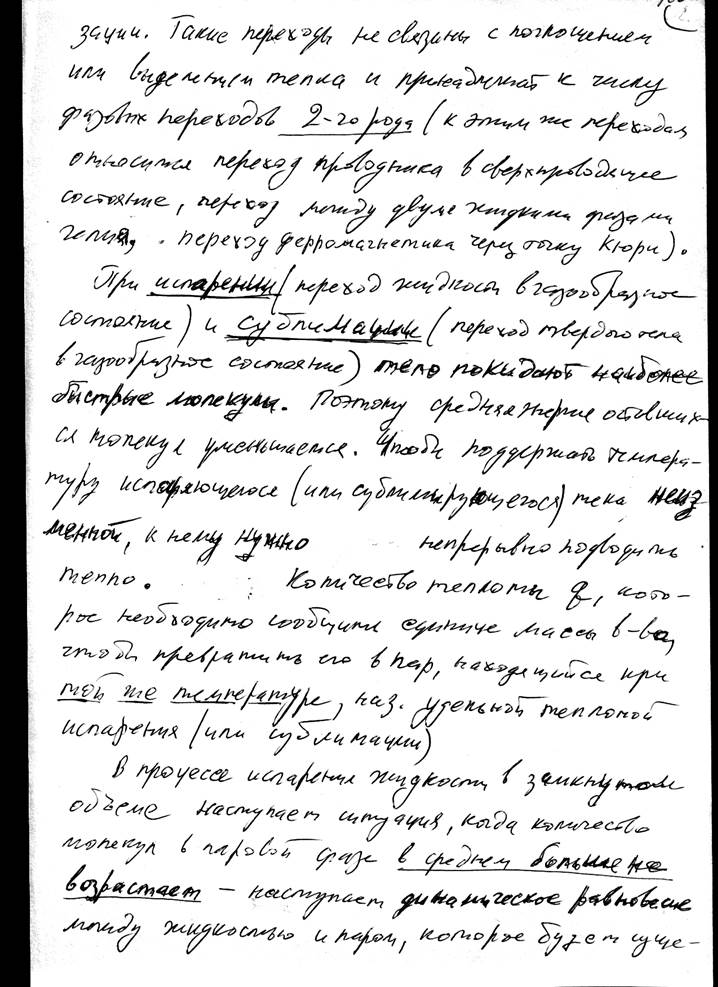 2.
зации. Такие переходы не связаны с поглощением
или выделением тепла и принадлежат к числу
фазовых переходов 2-го рода (к этим же переходам
относится переход проводника в сверхпроводящее
состояние, переход между двумя жидкими фазами
гелия, переход ферромагнетика через точку Кюри).
При испарении (переход жидкости в газообразное
состояние) и сублимации (переход твердого тела
в газообразное состояние) тело покидают наиболее
быстрые молекулы. Поэтому средняя энергия оставших-
ся молекул уменьшается. Чтобы поддержать темпера-
туру испаряющегося (или сублимирующегося) тела неиз-
менной, к нему нужно непрерывно подводить
тепло. Количество теплоты q, кото-
рое необходимо сообщить единице массы в-ва,
чтобы превратить его в пар, находящийся при
той же температуре, наз. удельной теплотой
испарения (или сублимации)
В процессе испарения жидкости в замкнутом
объеме наступает ситуация, когда количество
молекул в паровой фазе в среднем больше не
возрастает – наступает динамическое равновесие
между жидкостью и паром, которое будет суще-